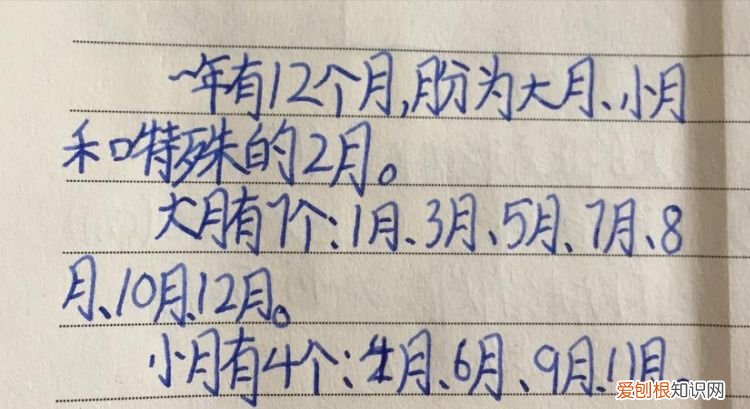 一年有12个月,月份为大月、小月
和特殊的2月。
大月有7个:1月、3月、5月、7月、8
月、10月、12月。
小月有4个:4月、6月、9月、11月
爱刨根知识网